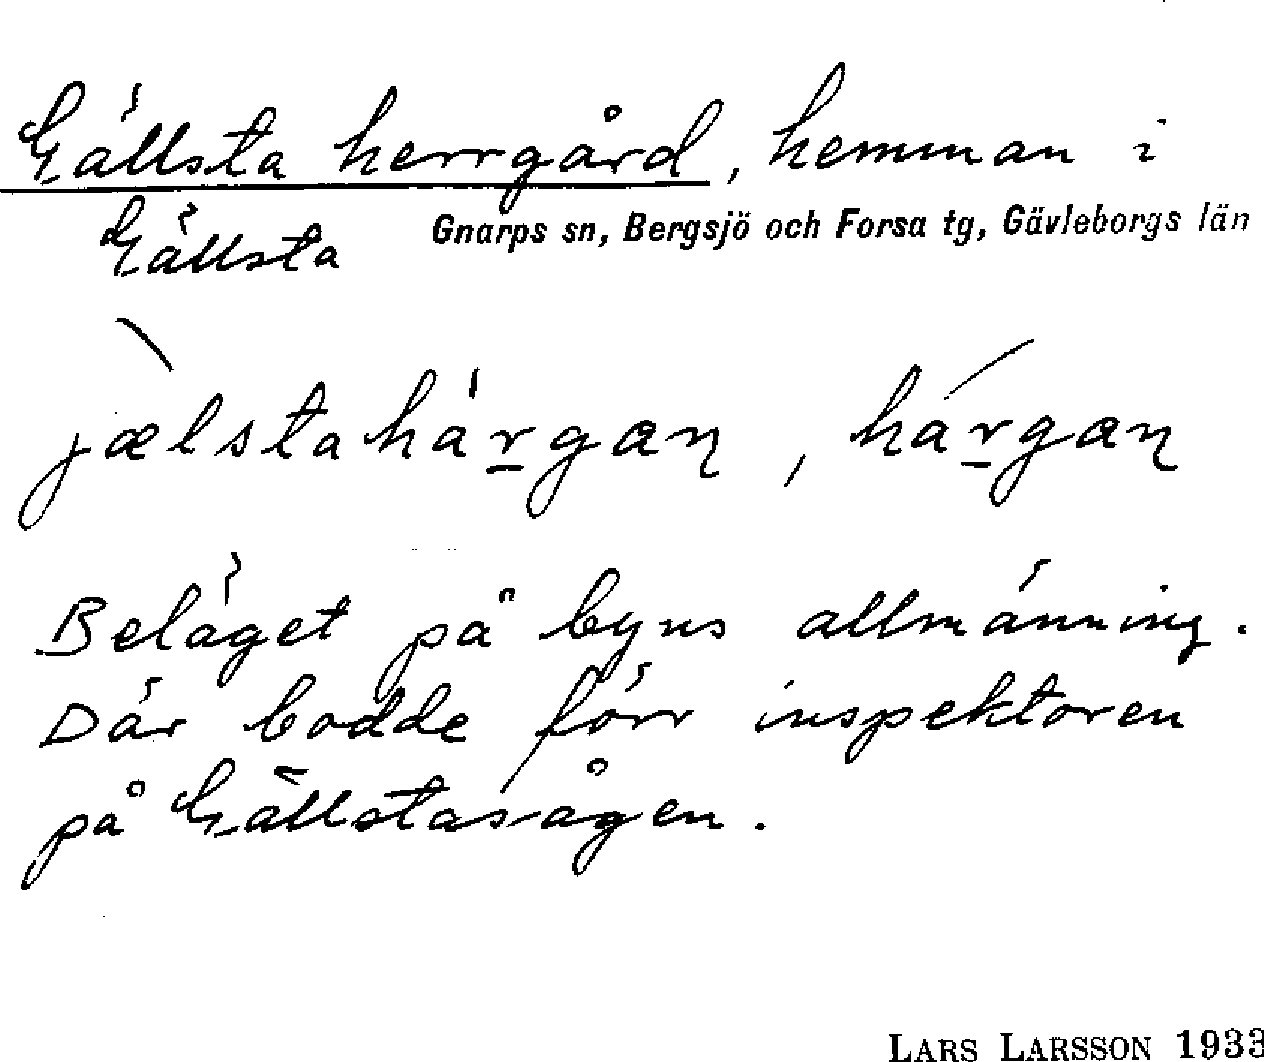 Gällsta herrgård, hemman i
Gällsta Gnarps sn, Bergsjö och Forsa tg, Gävleborgs län
jælstahárgan, hárgan
Beläget på byns allmänning.
Där bodde förr inspektoren
på Gällstasågen.
LARS LARSSON 1933